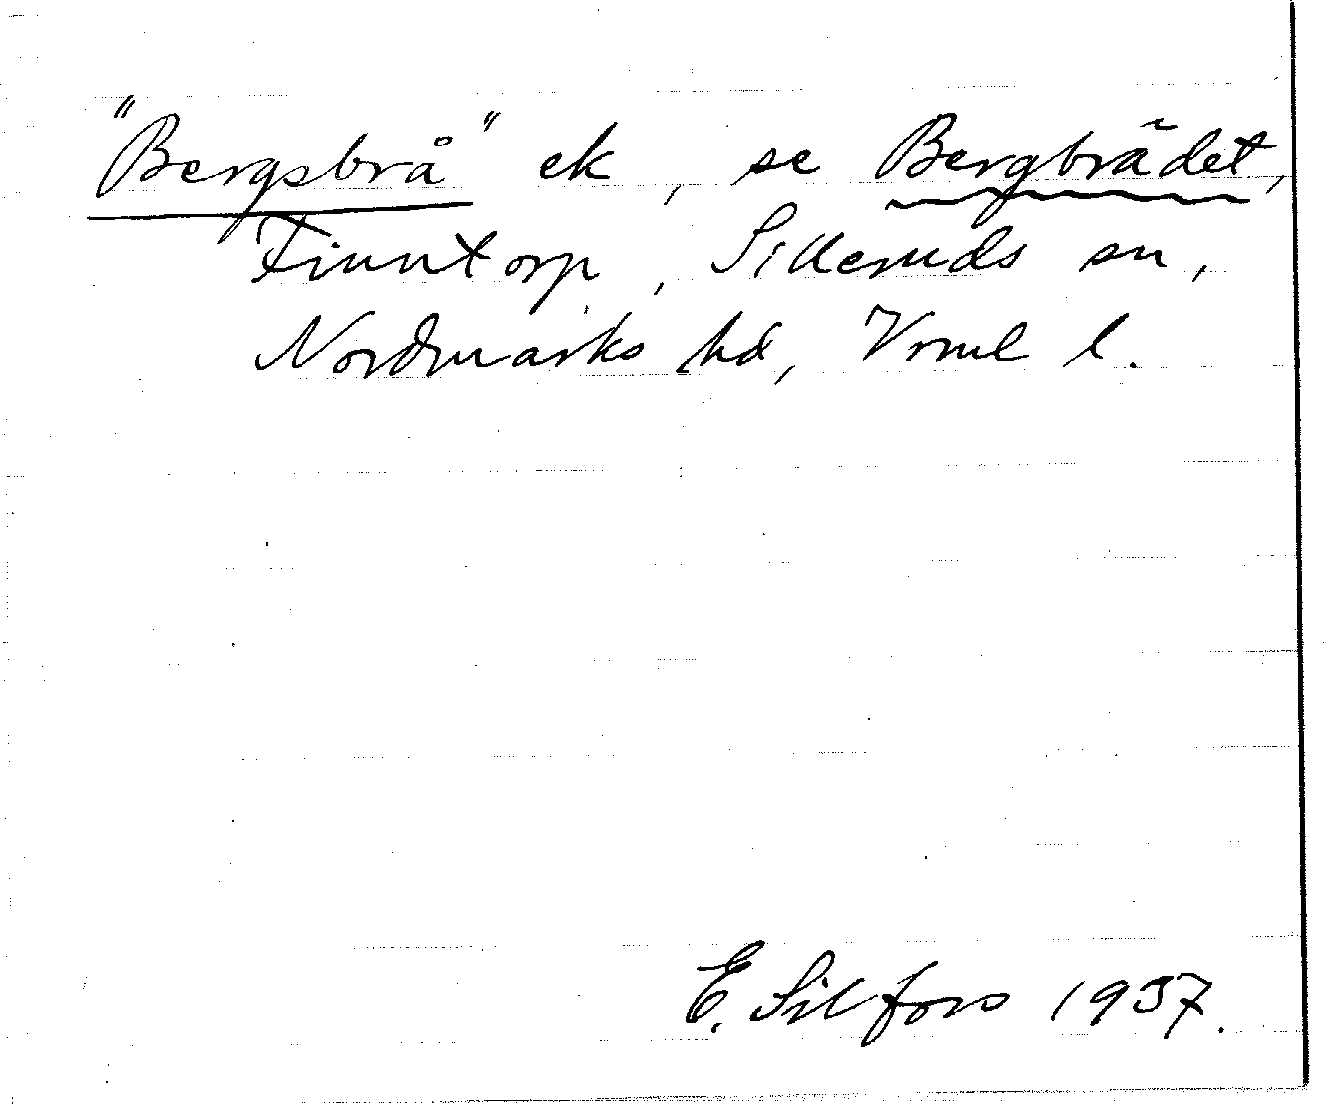 "Bergsbrå" ek, se Bergbrädet,
Finntorp, Silleruds sn,
Nordmarks hd, Vrml l.
E. Silfors 1937.